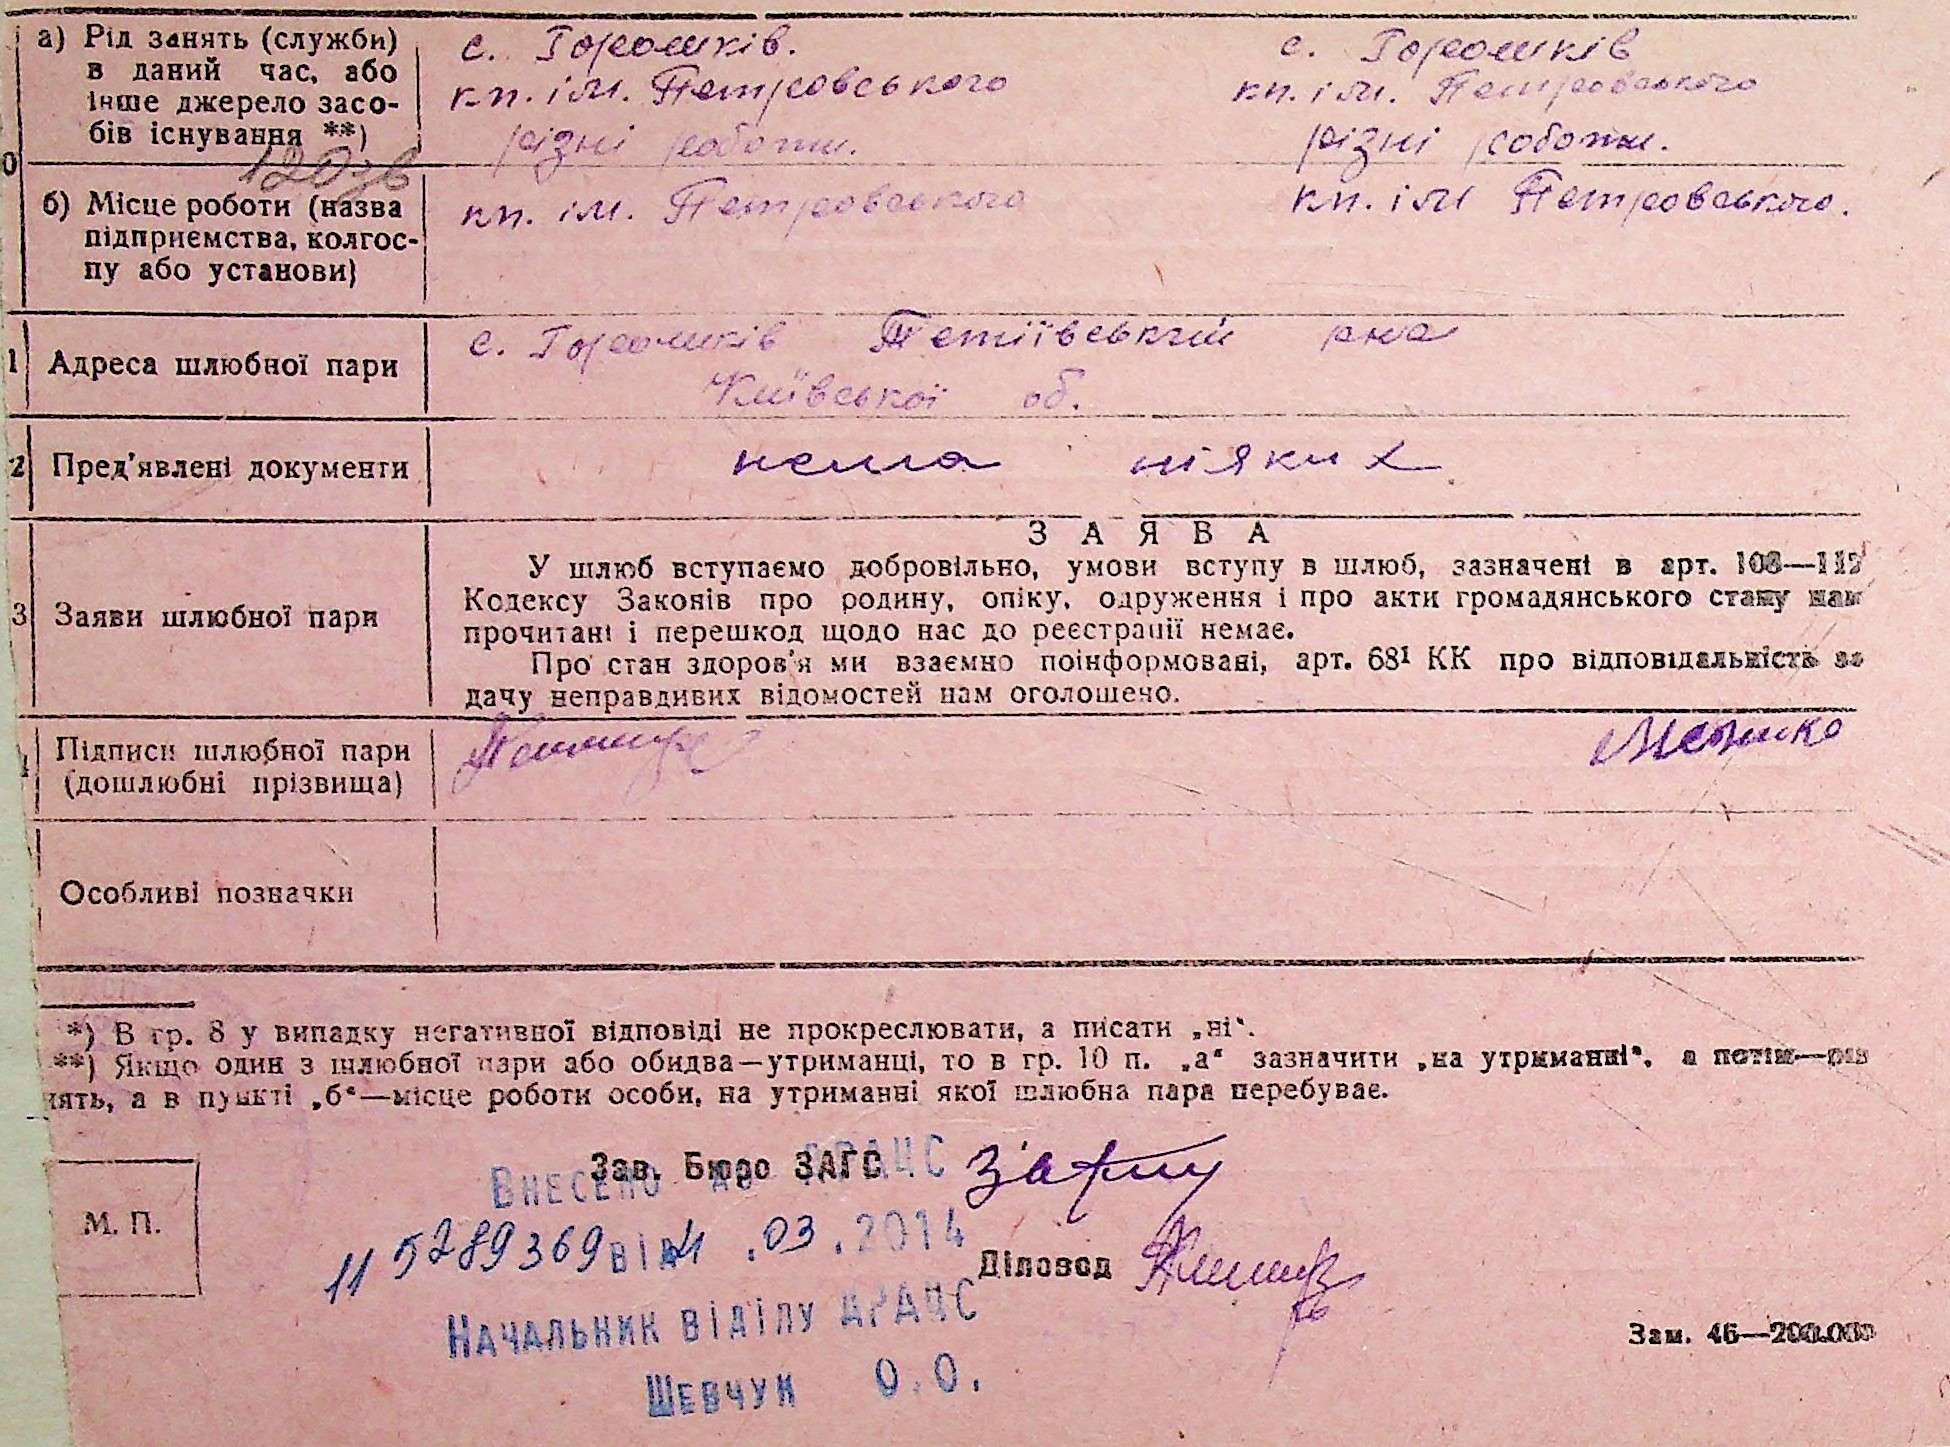 а) Рід занять (служби) в даний час, або інше джерело засобів існування **)
с. Горошків. с. Горошків
кп. ім. Петровського кп. ім. Петровського
різні роботи. різні роботи.
0
б) Місце роботи (назва
підприємства, колгос-
пу або установи)
кп. ім. Петровського кп. ім Петровського.
1 Адреса шлюбної пари
с. Горошків Тетіївський рна
Київської об.
2 Пред'явлені документи нема ніяких
3 Заяви шлюбної пари
ЗАЯВА
У шлюб вступаємо добровільно, умови вступу в шлюб, зазначені в арт. 108—117
Кодексу Законів про родину, опіку, одруження і про акти громадянського стану нам
прочитані і перешкод щодо нас до реєстрації немає.
Про стан здоров'я ми взаємно поінформовані, арт. 68¹ КК про відповідальність за
дачу неправдивих відомостей нам оголошено.
Підписи шлюбної пари
(дошлюбні прізвища)
Особливі позначки
*) В гр. 8 у випадку негативної відповіді не прокреслювати, а писати „ні“.
**) Якщо один з шлюбної пари або обидва—утриманці, то в гр. 10 п. „а“ зазначити „на утриманні“, а потім—
нять, а в пункті „б“—місце роботи особи, на утриманні якої шлюбна пара перебуває.
Зав. Бюро ЗАГС
Внесено до ДРАЦС
М. П.
11 5289369 від .03.2014
Діловод
Начальник відділу ДРАЦС
Зам. 46—200.000
Шевчук О.О.